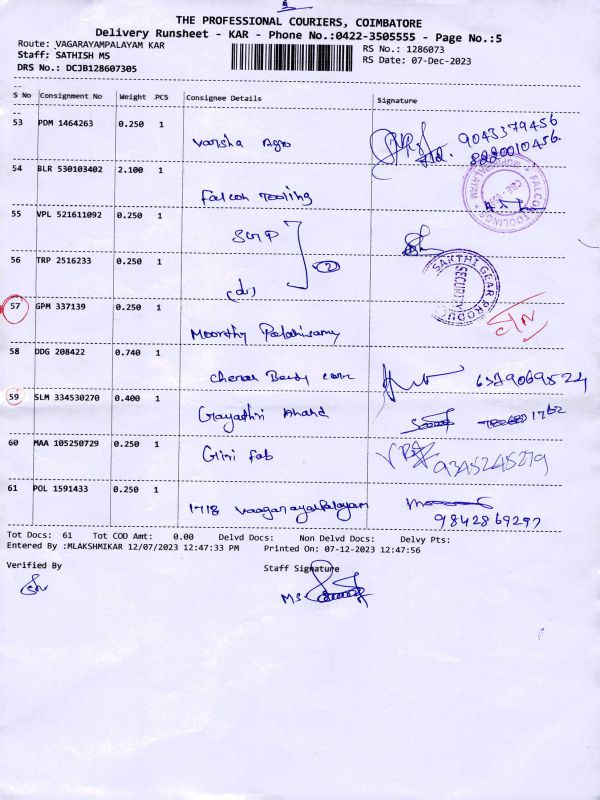 THE PROFESSIONAL COURIERS, COIMBATORE
Delivery Runsheet - KAR - Phone No.:0422-3505555 - Page No.:5
Route: VAGARAYAMPALAYAM KAR
RS No.: 1286073
Staff: SATHISH MS
RS Date: 07-Dec-2023
DRS No.: DCJB128607305
S No Consignment No Weight PCS Consignee Details Signature
53 PDM 1464263 0.250 1
Varsha Agro
9043379456
8220010456
54 BLR 530103402 2.100 1
Falcon Tooling
FALCON TOOLINGS
55 VPL 521611092 0.250 1
SGP
56 TRP 2516233 0.250 1
2
(do)
SAKTHI GEAR PRODUCTS
SECURITY
57 GPM 337139 0.250 1
Moorthy Palanisamy
58 DDG 208422 0.740 1
Cheran Bendy
59 SLM 334530270 0.400 1
Gayathri Anand
60 MAA 105250729 0.250 1
Giri fab
9345245279
61 POL 1591433 0.250 1
1718 Vaagarayalpalayam
9842869297
Tot Docs: 61 Tot COD Amt: 0.00 Delvd Docs: Non Delvd Docs: Delvy Pts:
Entered By :MLAKSHMIKAR 12/07/2023 12:47:33 PM Printed On: 07-12-2023 12:47:56
Verified By Staff Signature
MS